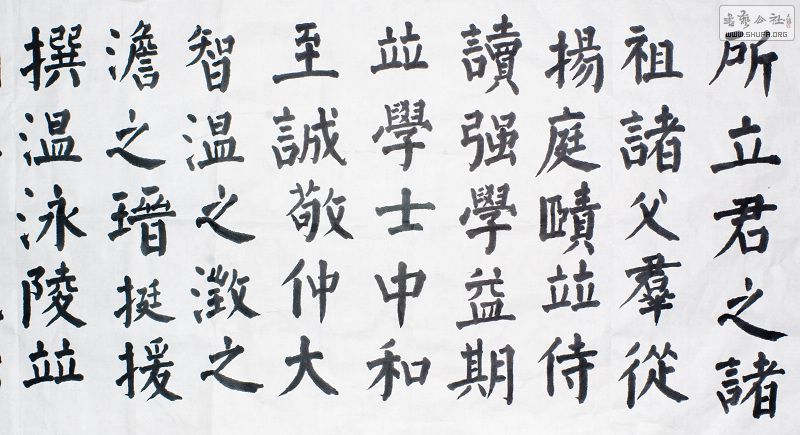 所立君之諸
祖諸父羣從
揚庭賾竝侍
讀强學益期
竝學士中和
至誠敬仲大
智温之澂之
澹之瑨挺援
撰温泳陵竝
书艺公社
WWW.SHUFA.ORG